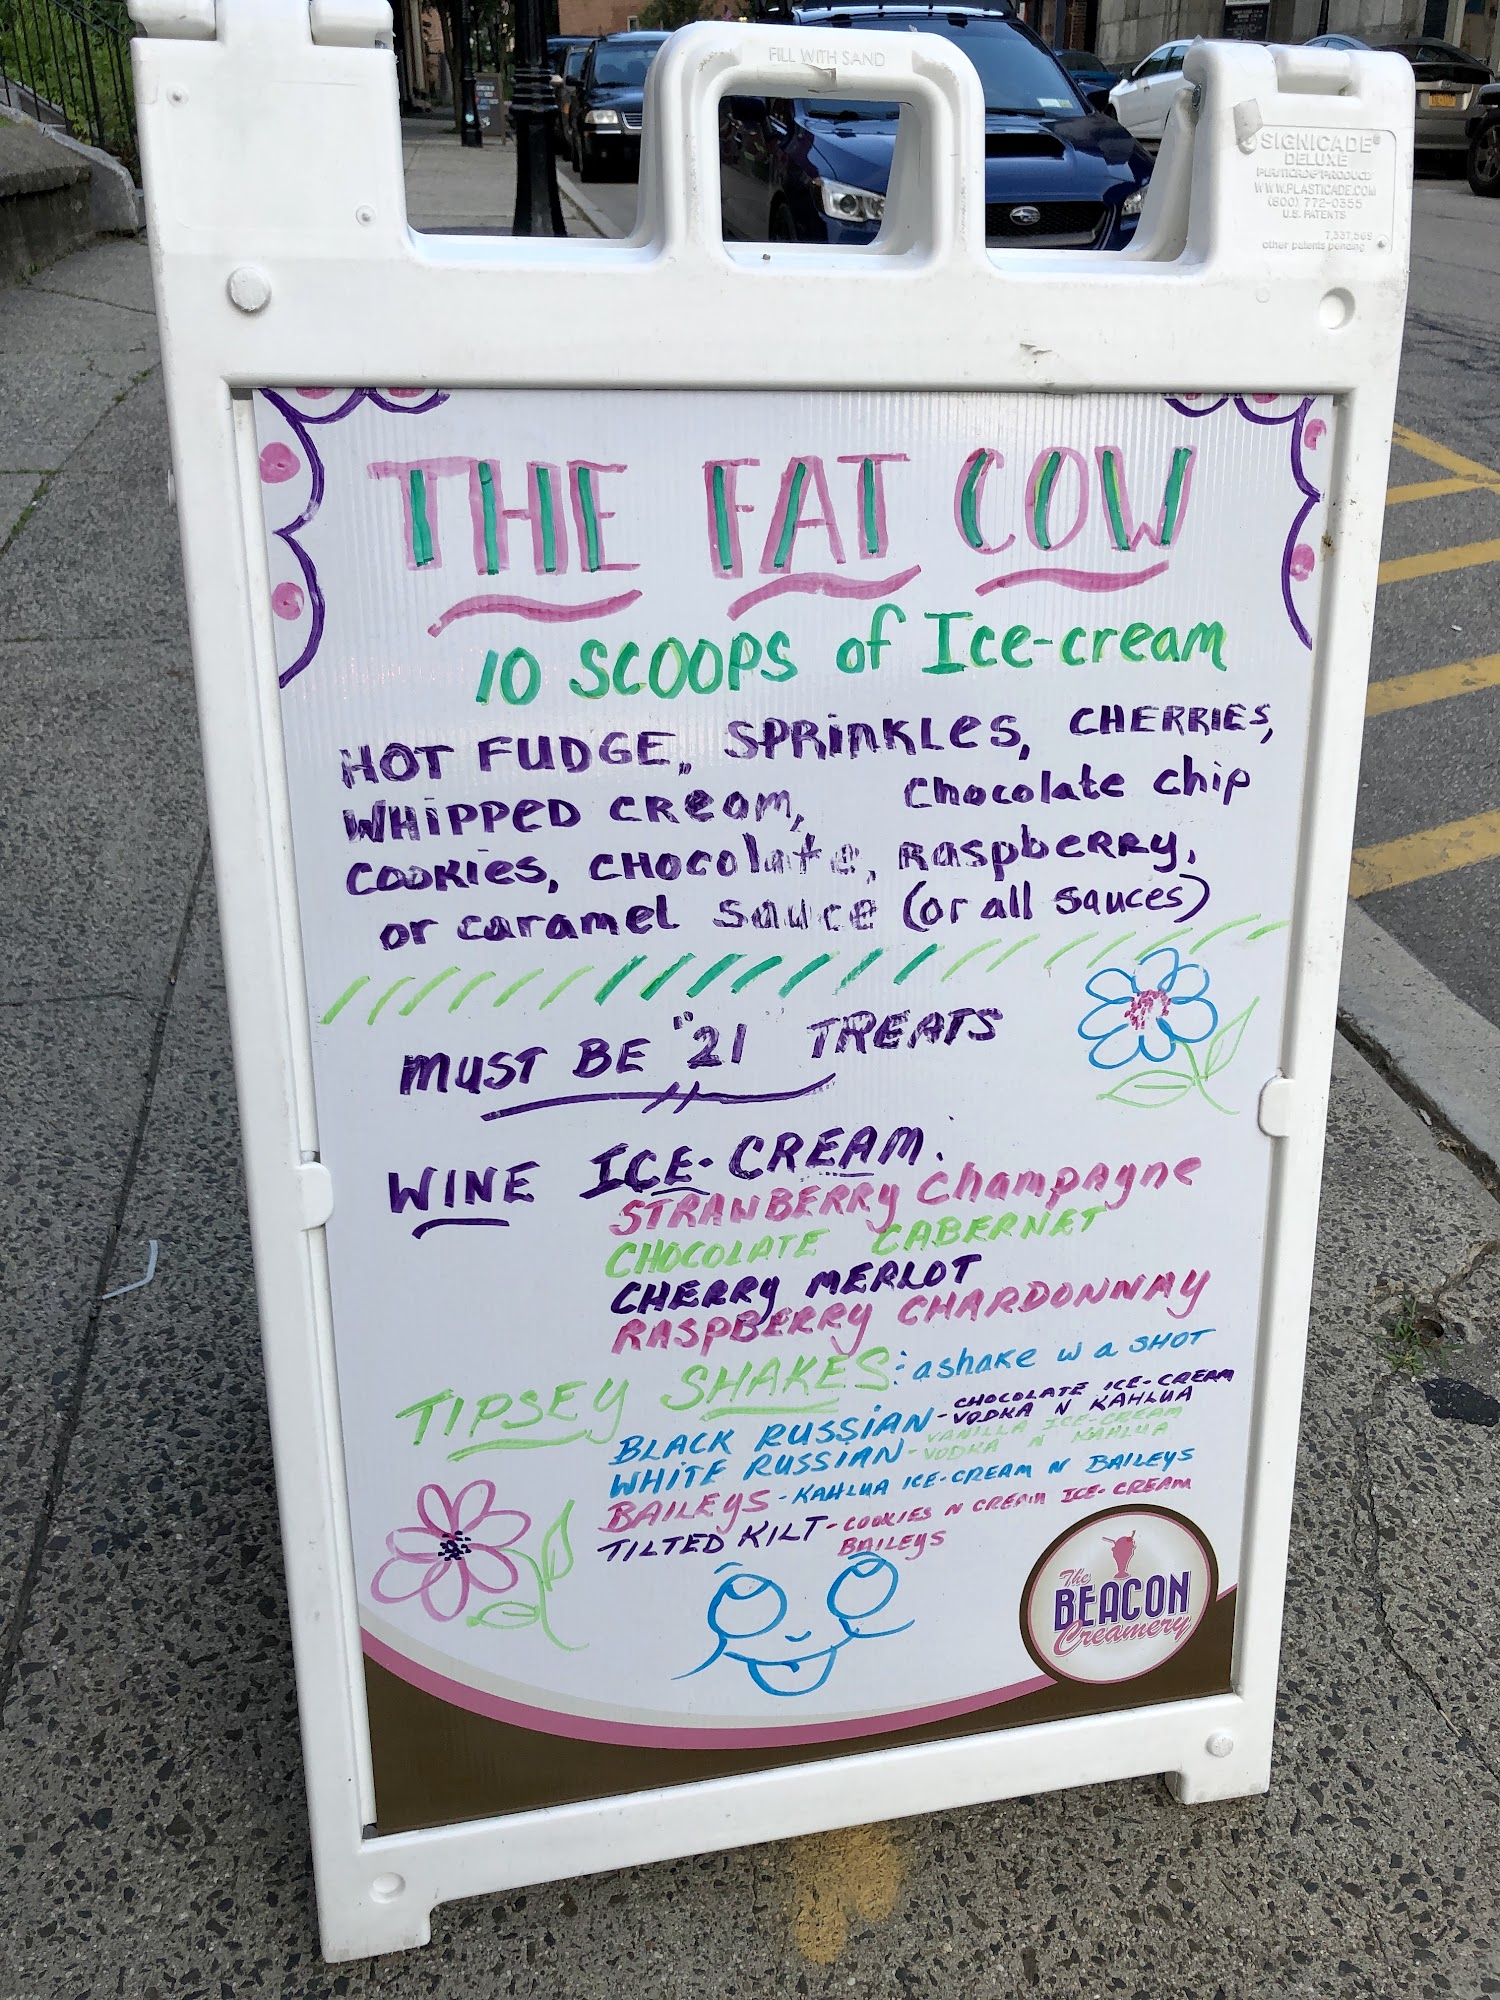 FILL WITH SAND
SIGNICADE®
DELUXE
PLASTICADE® PRODUCT
WWW.PLASTICADE.COM
(800) 772-0355
U.S. PATENTS
7,337,569
other patents pending
THE FAT COW
10 SCOOPS of Ice-cream
HOT FUDGE, SPRinKLes, CHERRIES,
WHiPPeD CReam, Chocolate chip
COOKies, CHOColate, Raspberry,
or caramel sauce (or all sauces)
MUST BE "21" TREATS
WINE ICE-CREAM:
STRANBERRY Champagne
CHOCOLATE CABERNET
CHERRY MERLOT
RASPBERRY CHARDONNAY
TIPSEY SHAKES: a shake w a SHOT
BLACK RUSSIAN - CHOCOLATE ICE-CREAM
VODKA N KAHLUA
WHITE RUSSIAN - VANILLA ICE-CREAM
VODKA N KAHLUA
BAILEYS - KAHLUA ICE-CREAM N BAILEYS
TILTED KILT - COOKIES N CREAM ICE-CREAM
BAILEYS
The
BEACON
Creamery